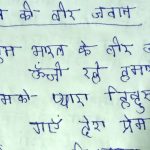 की वीर जवान
भारत के वीर
ऊँची रहे हमार
मको प्यारा हिन्दुस
गाएं तेरा प्रेम